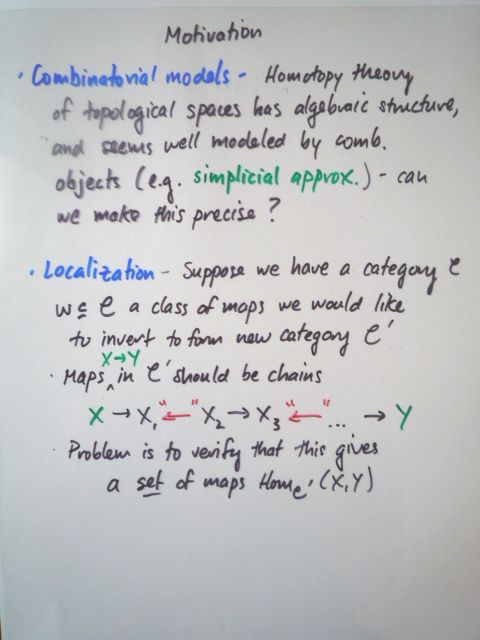 Motivation
· Combinatorial models - Homotopy theory
of topological spaces has algebraic structure,
and seems well modeled by comb.
objects (e.g. simplicial approx.) - can
we make this precise?
· Localization - Suppose we have a category C
W ⊆ C a class of maps we would like
to invert to form new category C'
X→Y
· Maps ^ in C' should be chains
X → X₁ "←" X₂ → X₃ "←" ... → Y
· Problem is to verify that this gives
a set of maps Hom_C'(X,Y)